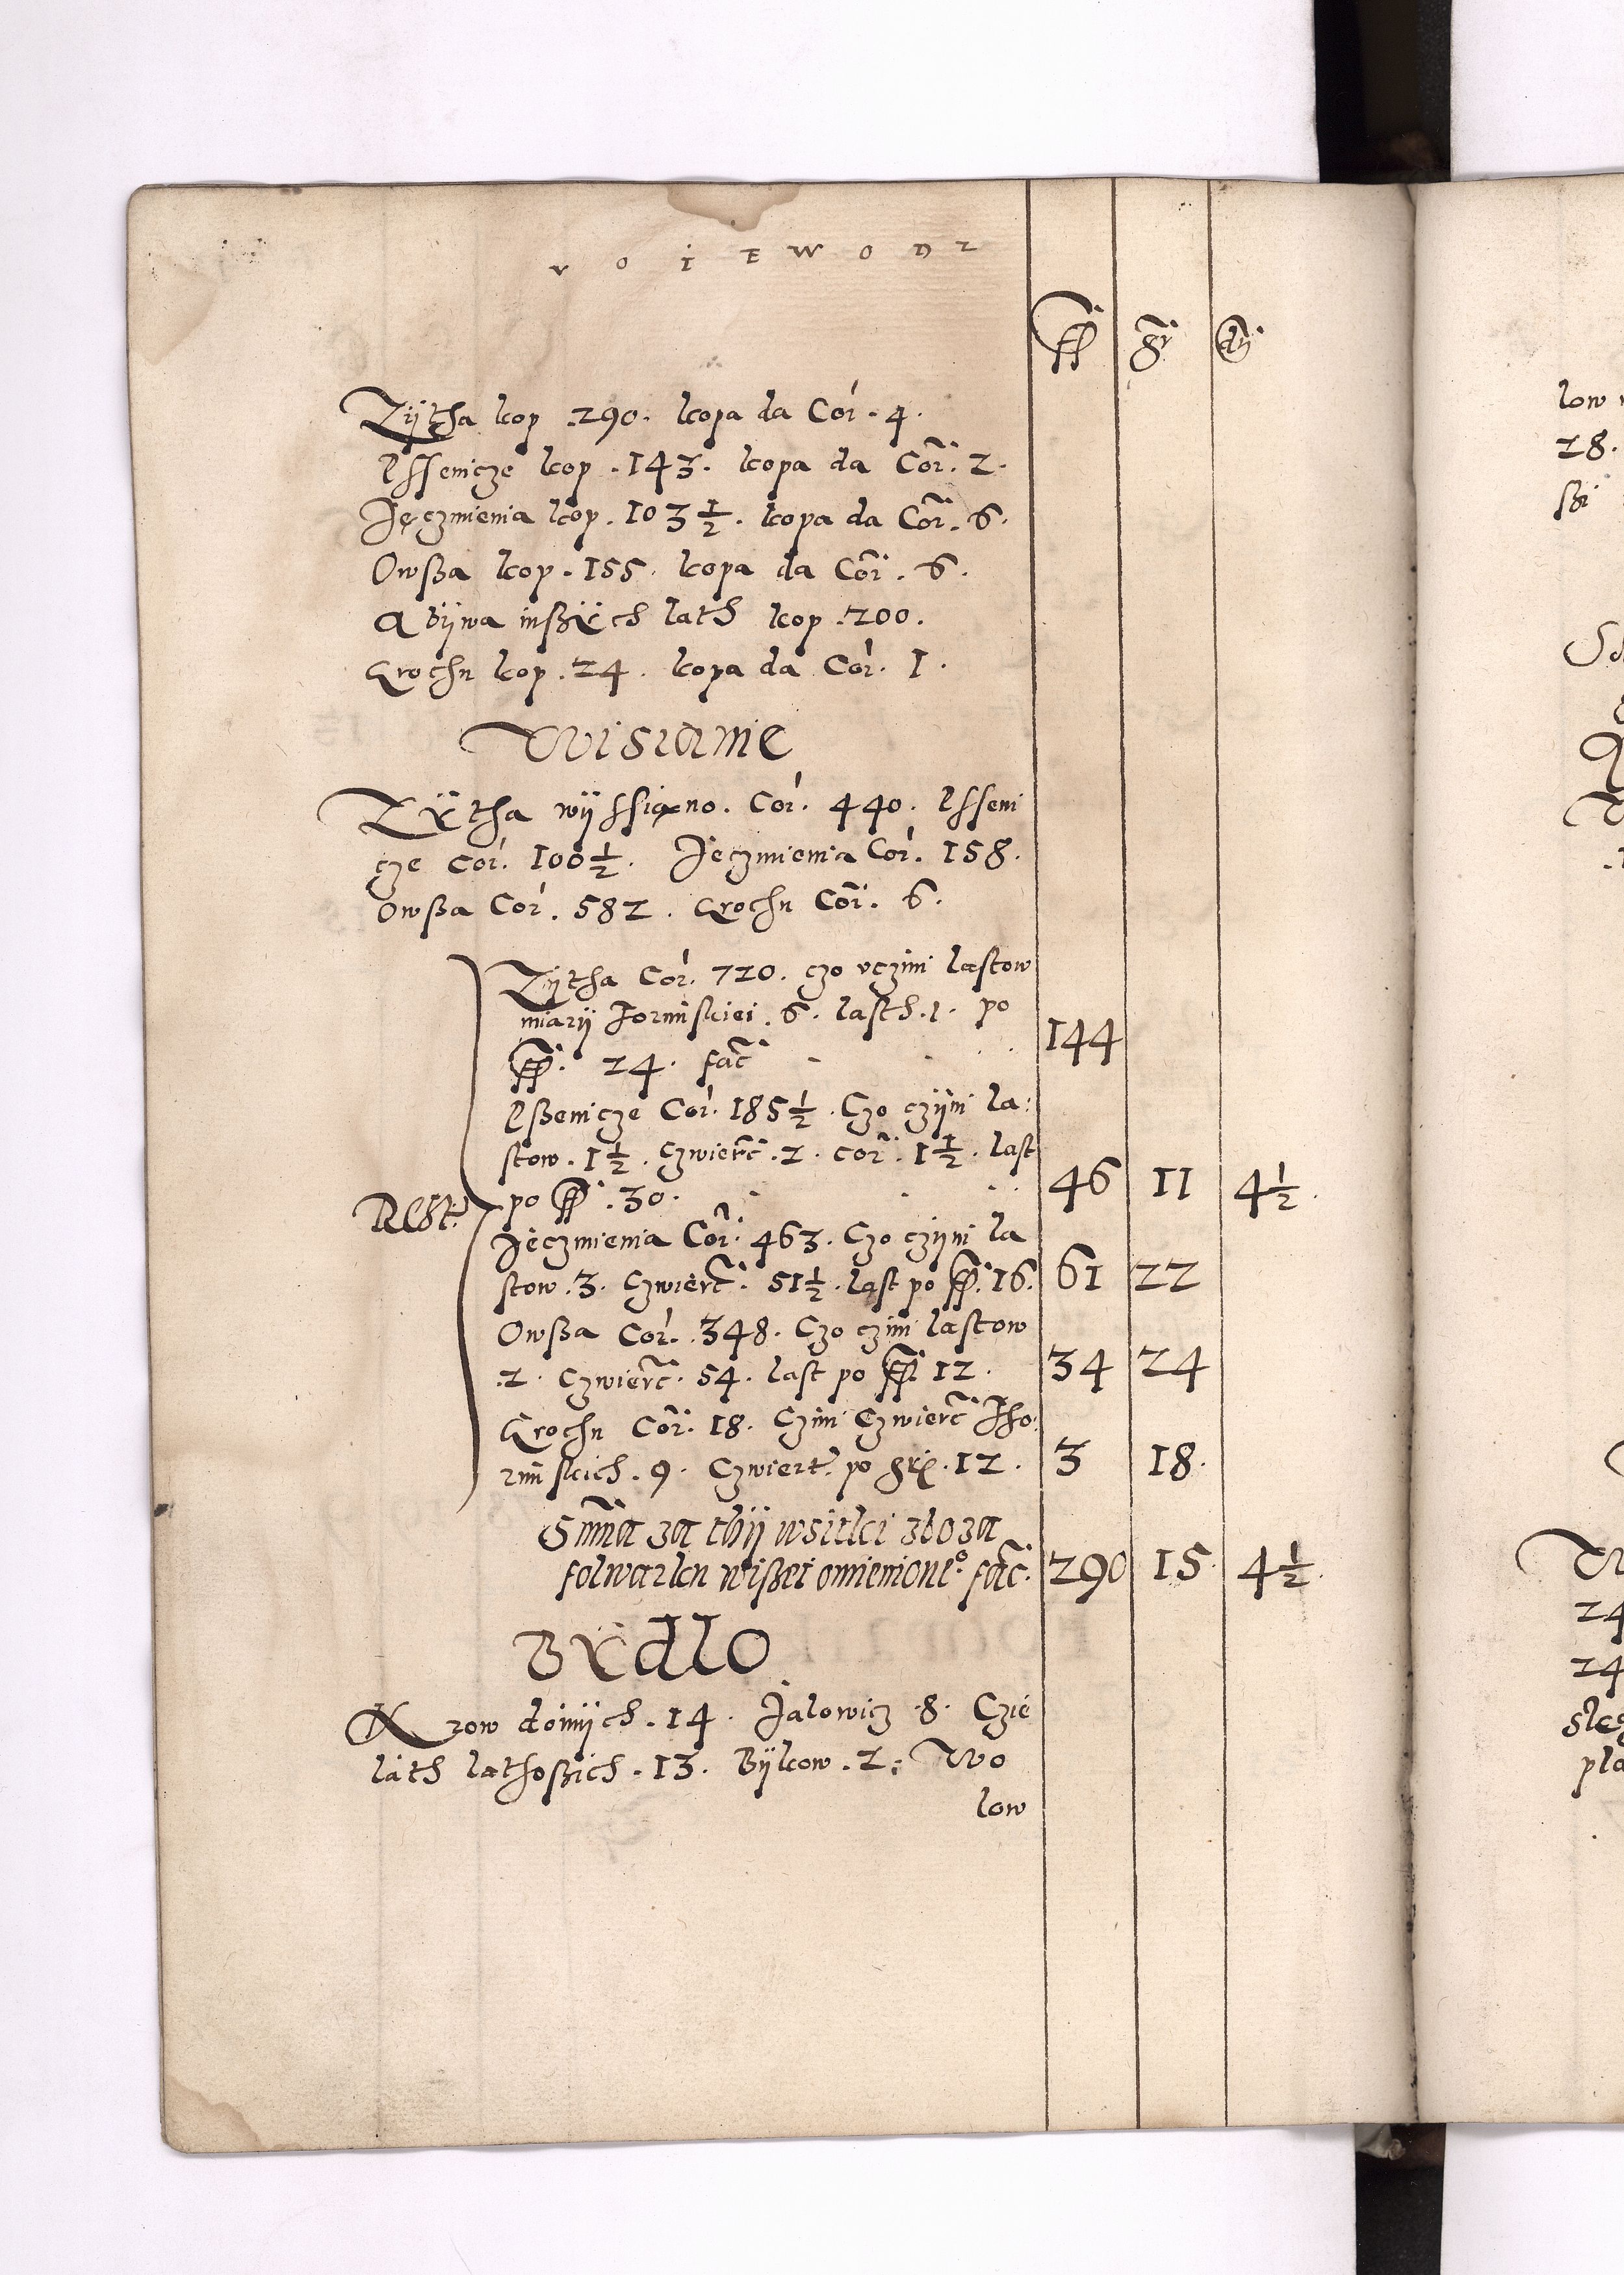 VOIEWODZ
ff gr dn
Zÿtha kop .290. kopa da Cor. 4.
Pssenicze kop .143. kopa da Cor. 2.
Jęczmienia kop. 103½. kopa da Cor. 6.
Owßa kop. 155. kopa da Cor. 6.
A bÿwa inßÿch lath kop .200.
Grochu kop .24. kopa da Cor. 1.
Wisianie
Zÿtha wÿssiano. Cor. 440. Psseni
cze Cor. 100½. Jeczmienia Cor. 158.
Owßa Cor. 582. Grochu Cor. 6.
Zÿtha Cor. 720. czo vczini lastow
miarÿ Torunskiei .6. lasth .1. po
ff. 24. fac 144
Pßenicze Cor. 185½. Czo czÿni la:
stow. 1½. Czwierc .2. cor. 1½. last
Rest: po ff .30. 46 11 4½.
Jęczmienia Cor. 463. Czo czÿni la
stow .3. Czwierc. 51½. last po ff. 16. 61 22
Owßa Cor. 348. Czo czini lastow
.2. Czwierc. 54. last po ff. 12. 34 24
Grochu Cor. 18. Czini Czwierc Tho
runskich. 9. Czwiert. po grz. 12. 3 18.
Summa za thÿ wsitki zboza
folwarku wißei omienione° fac. 290 15 4½.
BYdlo
Krow doinÿch. 14. Jalowicz .8. Czie
lath lathoßich. 13. Bÿkow .2. Wo
low
low
28.
ßi
24
24